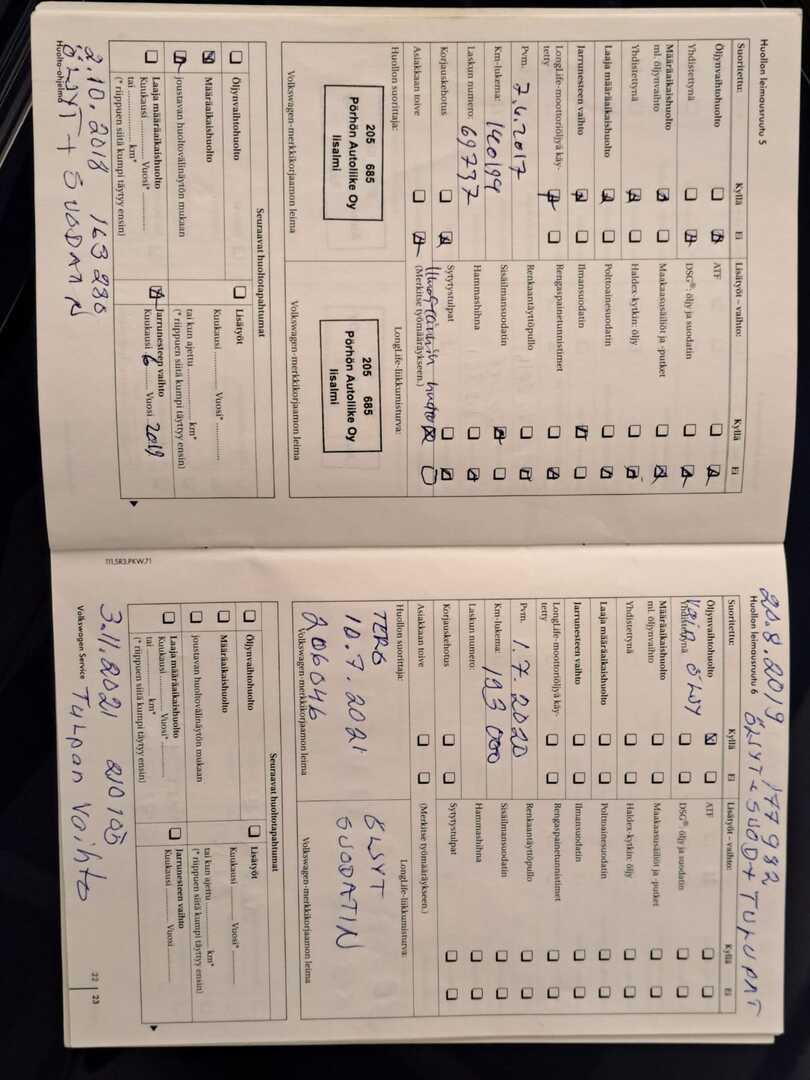 Huollon leimausruutu 5
Suoritettu: Kyllä Ei Lisätyöt – vaihto: Kyllä Ei
Öljynvaihtohuolto ATF
Yhdistettynä DSG®: öljy ja suodatin
Määräaikaishuolto Maakaasusäiliöt ja -putket
ml. öljynvaihto
Yhdistettynä Haldex-kytkin: öljy
Laaja määräaikaishuolto Polttoainesuodatin
Jarrunesteen vaihto Ilmansuodatin
LongLife-moottoriöljyä käy- Rengaspainetunnistimet
tetty
Pvm. 7.6.2017 Renkaantäyttöpullo
Km-lukema: 140199 Sisäilmansuodatin
Laskun numero: 69737 Hammashihna
Korjauskehotus Sytytystulpat
Asiakkaan toive (Merkitse työmääräykseen.)
Huollon suorittaja: LongLife-liikkumisturva:
205 685
Pörhön Autoliike Oy
Iisalmi
205 685
Pörhön Autoliike Oy
Iisalmi
Volkswagen-merkkikorjaamon leima Volkswagen-merkkikorjaamon leima
Seuraavat huoltotapahtumat
Öljynvaihtohuolto Lisätyöt
Määräaikaishuolto Kuukausi Vuosi*
joustavan huoltovälinäytön mukaan tai kun ajettu km*
(* riippuen siitä kumpi täytyy ensin)
Laaja määräaikaishuolto Jarrunesteen vaihto
Kuukausi Vuosi* Kuukausi 6 Vuosi 2019
tai km*
(* riippuen siitä kumpi täytyy ensin)
2.10.2018 163 238
Huolto-ohjelma
ÖLJYT + SUODATIN
111.5R3.PKW.71
20.8.2019 177 982
Huollon leimausruutu 6
ÖLJYT + SUOD + TULPAT
Suoritettu: Kyllä Ei Lisätyöt – vaihto: Kyllä Ei
Öljynvaihtohuolto ATF
Vain ÖLJY
Yhdistettynä DSG®: öljy ja suodatin
Määräaikaishuolto Maakaasusäiliöt ja -putket
ml. öljynvaihto
Yhdistettynä Haldex-kytkin: öljy
Laaja määräaikaishuolto Polttoainesuodatin
Jarrunesteen vaihto Ilmansuodatin
LongLife-moottoriöljyä käy- Rengaspainetunnistimet
tetty
Pvm. 1.7.2020 Renkaantäyttöpullo
Km-lukema: 193 000 Sisäilmansuodatin
Laskun numero: Hammashihna
Korjauskehotus Sytytystulpat
Asiakkaan toive (Merkitse työmääräykseen.)
Huollon suorittaja: LongLife-liikkumisturva:
10.7.2021 ÖLJYT
206046 SUODATIN
Volkswagen-merkkikorjaamon leima Volkswagen-merkkikorjaamon leima
Seuraavat huoltotapahtumat
Öljynvaihtohuolto Lisätyöt
Määräaikaishuolto Kuukausi Vuosi*
joustavan huoltovälinäytön mukaan tai kun ajettu km*
(* riippuen siitä kumpi täytyy ensin)
Laaja määräaikaishuolto Jarrunesteen vaihto
Kuukausi Vuosi* Kuukausi Vuosi
tai km*
(* riippuen siitä kumpi täytyy ensin)
3.11.2021 210 105
Volkswagen Service
Tulpan Vaihto
22 | 23